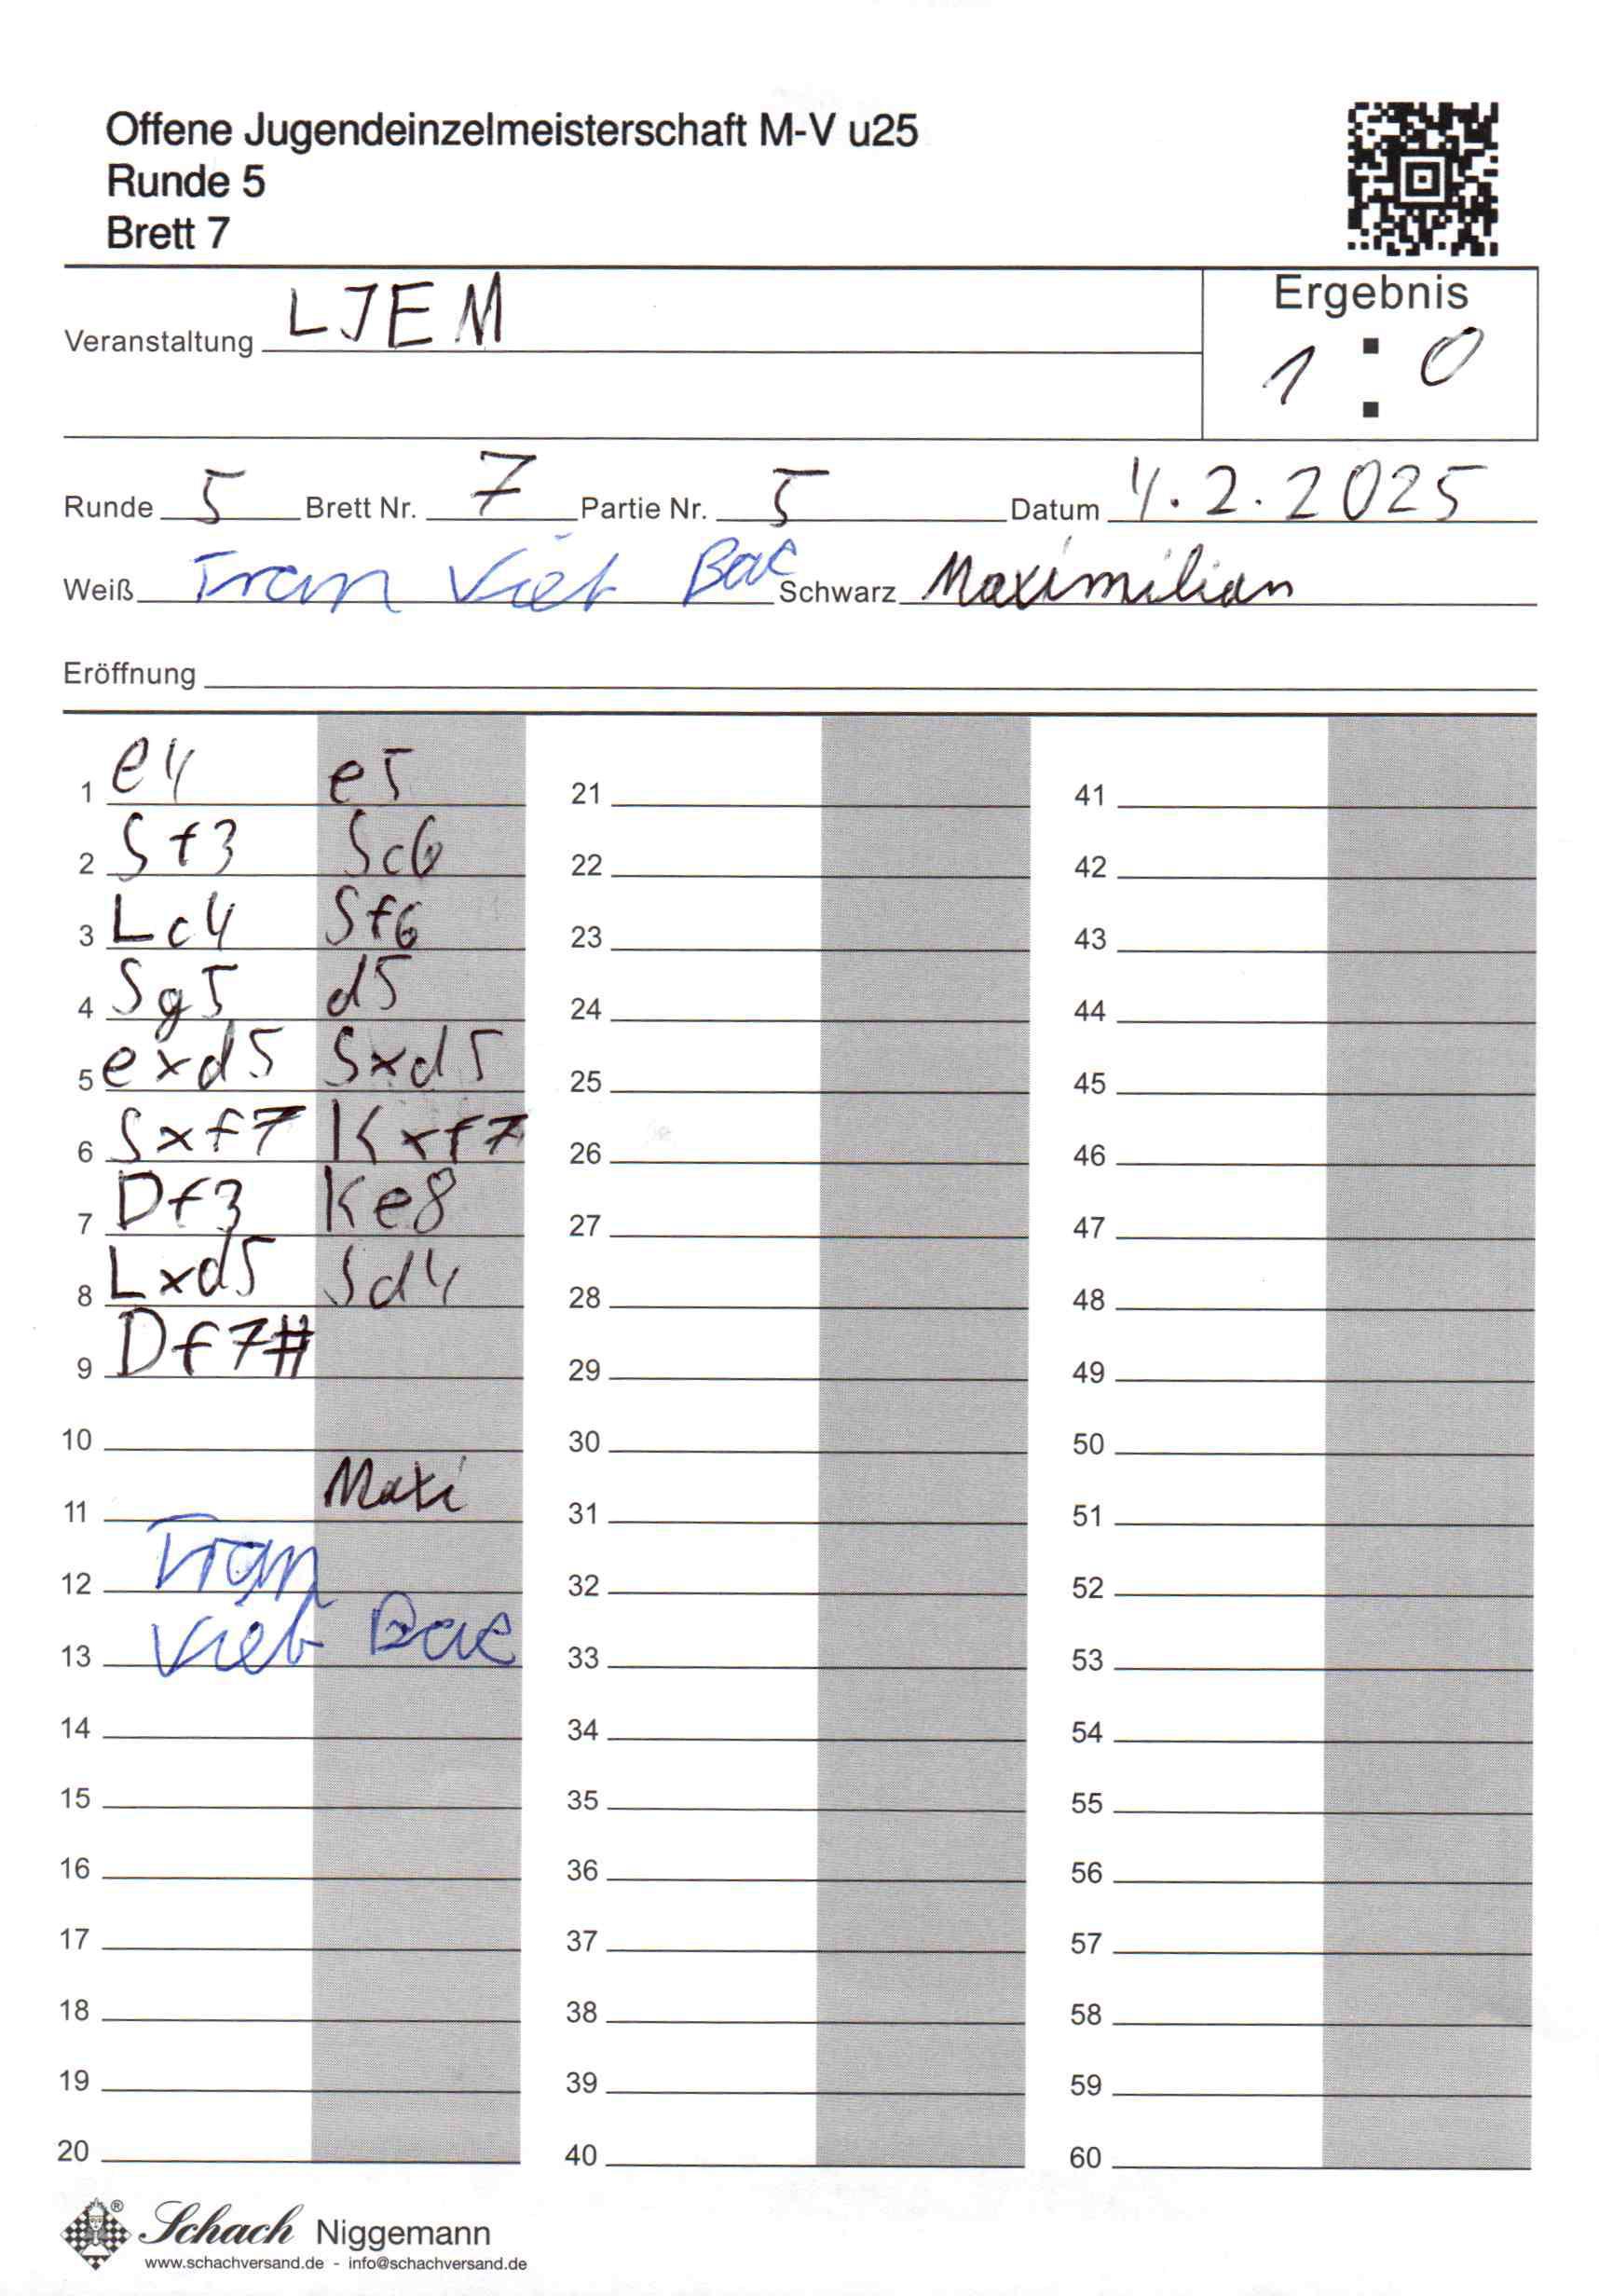 Offene Jugendeinzelmeisterschaft M-V u25
Runde 5
Brett 7
Ergebnis
Veranstaltung LJEM
1 : 0
Runde 5 Brett Nr. 7 Partie Nr. 5 Datum 4.2.2025
Weiß Tran Viet Bac Schwarz Maximilian
Eröffnung
1 e4 e5 21 41
2 Sf3 Sc6 22 42
3 Lc4 Sf6 23 43
4 Sg5 d5 24 44
5 exd5 Sxd5 25 45
6 Sxf7 Kxf7 26 46
7 Df3 Ke8 27 47
8 Lxd5 Sd4 28 48
9 Df7# 29 49
10 30 50
11 Maxi 31 51
12 Tran 32 52
13 Viet Bac 33 53
14 34 54
15 35 55
16 36 56
17 37 57
18 38 58
19 39 59
20 40 60
® Schach Niggemann
www.schachversand.de - info@schachversand.de